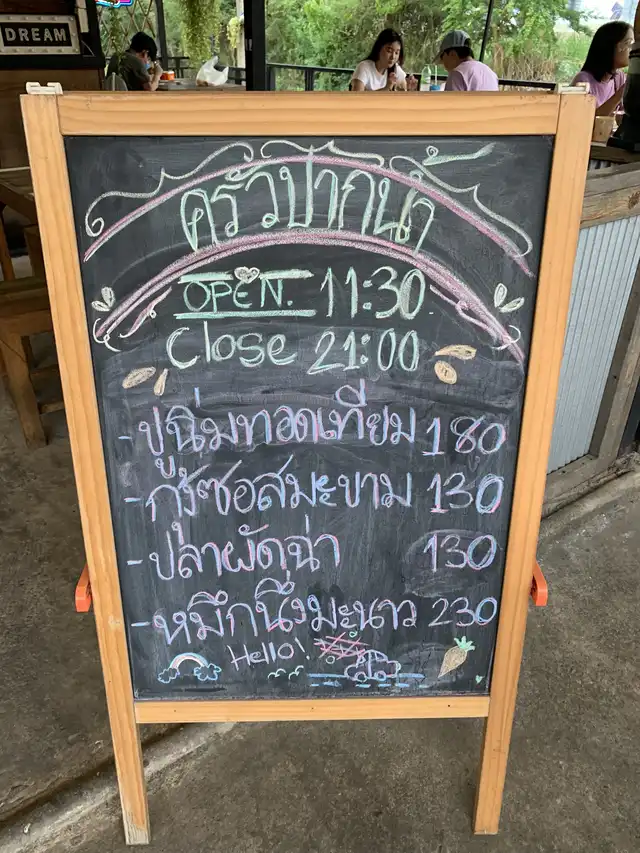 DREAM
ครัวปากน้ำ
OPEN. 11:30
Close 21:00
-ปูนิ่มทอดเทียม 180
-กุ้งซอสมะขาม 130
-ปลาผัดฉ่า 130
-หมึกนึ่งมะนาว 230
Hello!